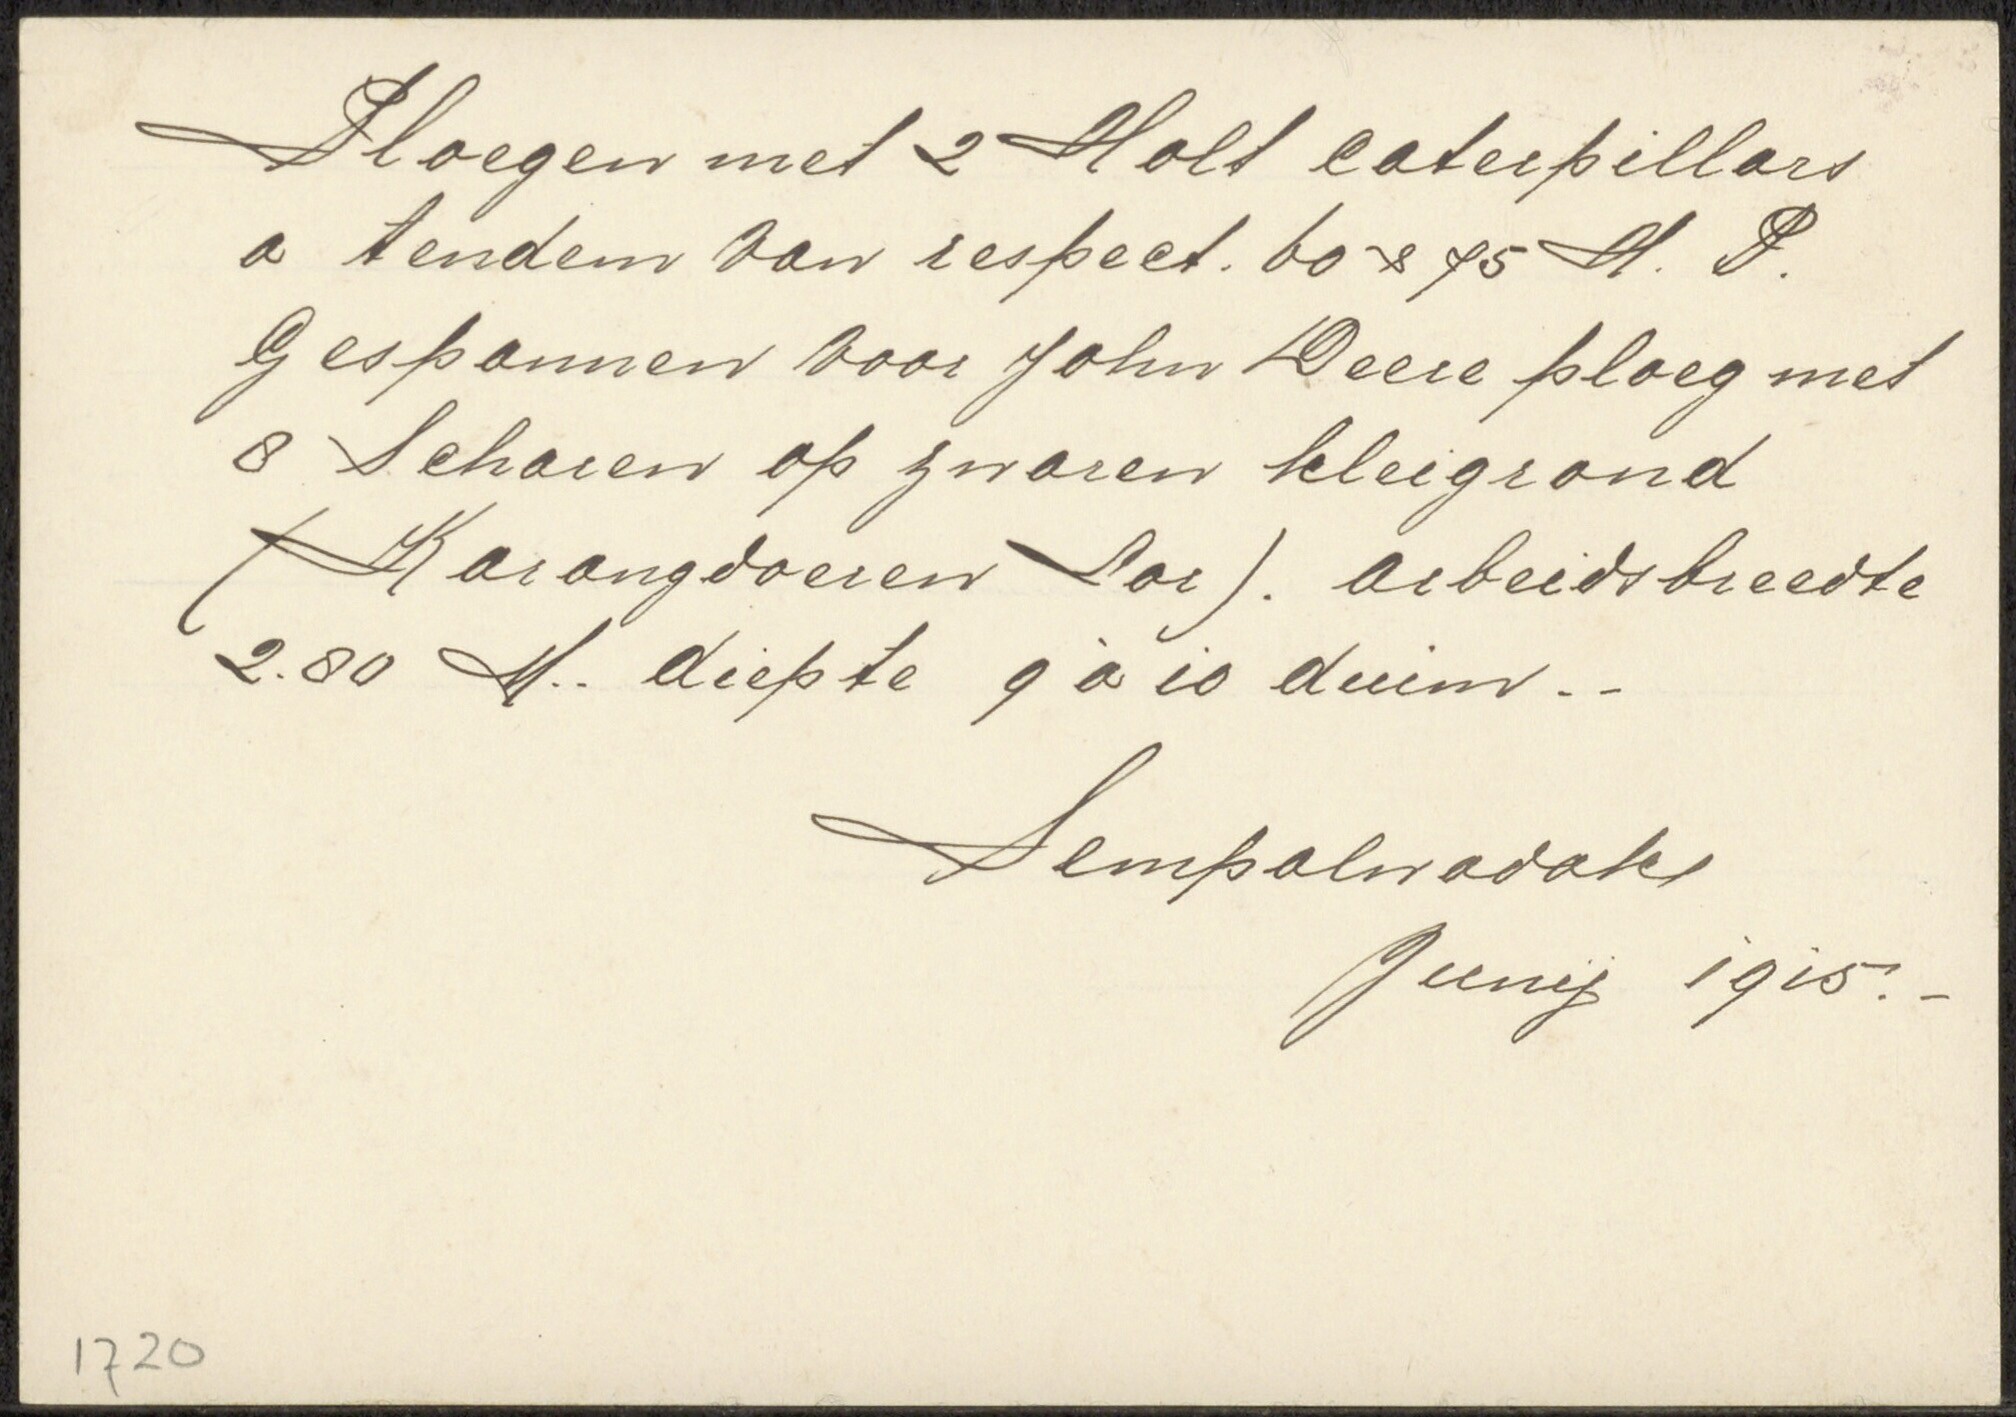 Ploegen met 2 Holt caterpillars
a tendem van respect. 60 & 75 H. P.
Gespannen voor John Deere ploeg met
8 Scharen op zwaren kleigrond
(Karangdoeren Lor). arbeidsbreedte
2.80 M.. diepte 9 à 10 duim.--
Sempalwadak
Junij 1915.-
1720